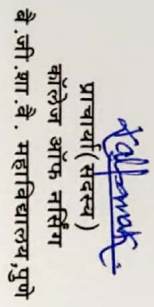 प्राचार्या(सदस्य)
कॉलेज ऑफ नर्सिंग
बै.जी.शा.वै. महाविद्यालय,पुणे